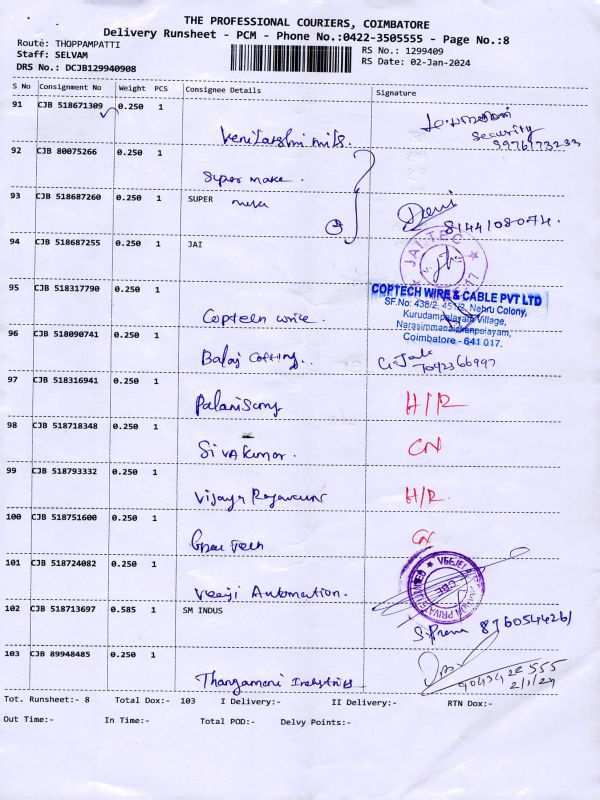 THE PROFESSIONAL COURIERS, COIMBATORE
Delivery Runsheet - PCM - Phone No.:0422-3505555 - Page No.:8
Route: THOPPAMPATTI
RS No.: 1299409
Staff: SELVAM
RS Date: 02-Jan-2024
DRS No.: DCJB129940908
S No Consignment No Weight PCS Consignee Details Signature
91 CJB 518671309 0.250 1
Security
9976173233
92 CJB 80075266 0.250 1
Super make.
93 CJB 518687260 0.250 1 SUPER
8144108074.
94 CJB 518687255 0.250 1 JAI
JAI TEC
95 CJB 518317790 0.250 1
COPTECH WIRE & CABLE PVT LTD
SF.No: 438/2, Nehru Colony,
Kurudampalayam Village,
Narasimanaickenpalayam,
Coimbatore - 641 017.
Coptech wire.
96 CJB 518090741 0.250 1
Balaji Coating.
7042366997
97 CJB 518316941 0.250 1
Palanisamy H/R
98 CJB 518718348 0.250 1
Sivakumar. CN
99 CJB 518793332 0.250 1
Vijaya H/R.
100 CJB 518751600 0.250 1
Tech CN
101 CJB 518724082 0.250 1
Veeji Automation.
102 CJB 518713697 0.585 1 SM INDUS
S.Prema 8760544261
103 CJB 89948485 0.250 1
Thangamani Industries
2/1/24
Tot. Runsheet:- 8 Total Dox:- 103 I Delivery:- II Delivery:- RTN Dox:-
Out Time:- In Time:- Total POD:- Delvy Points:-